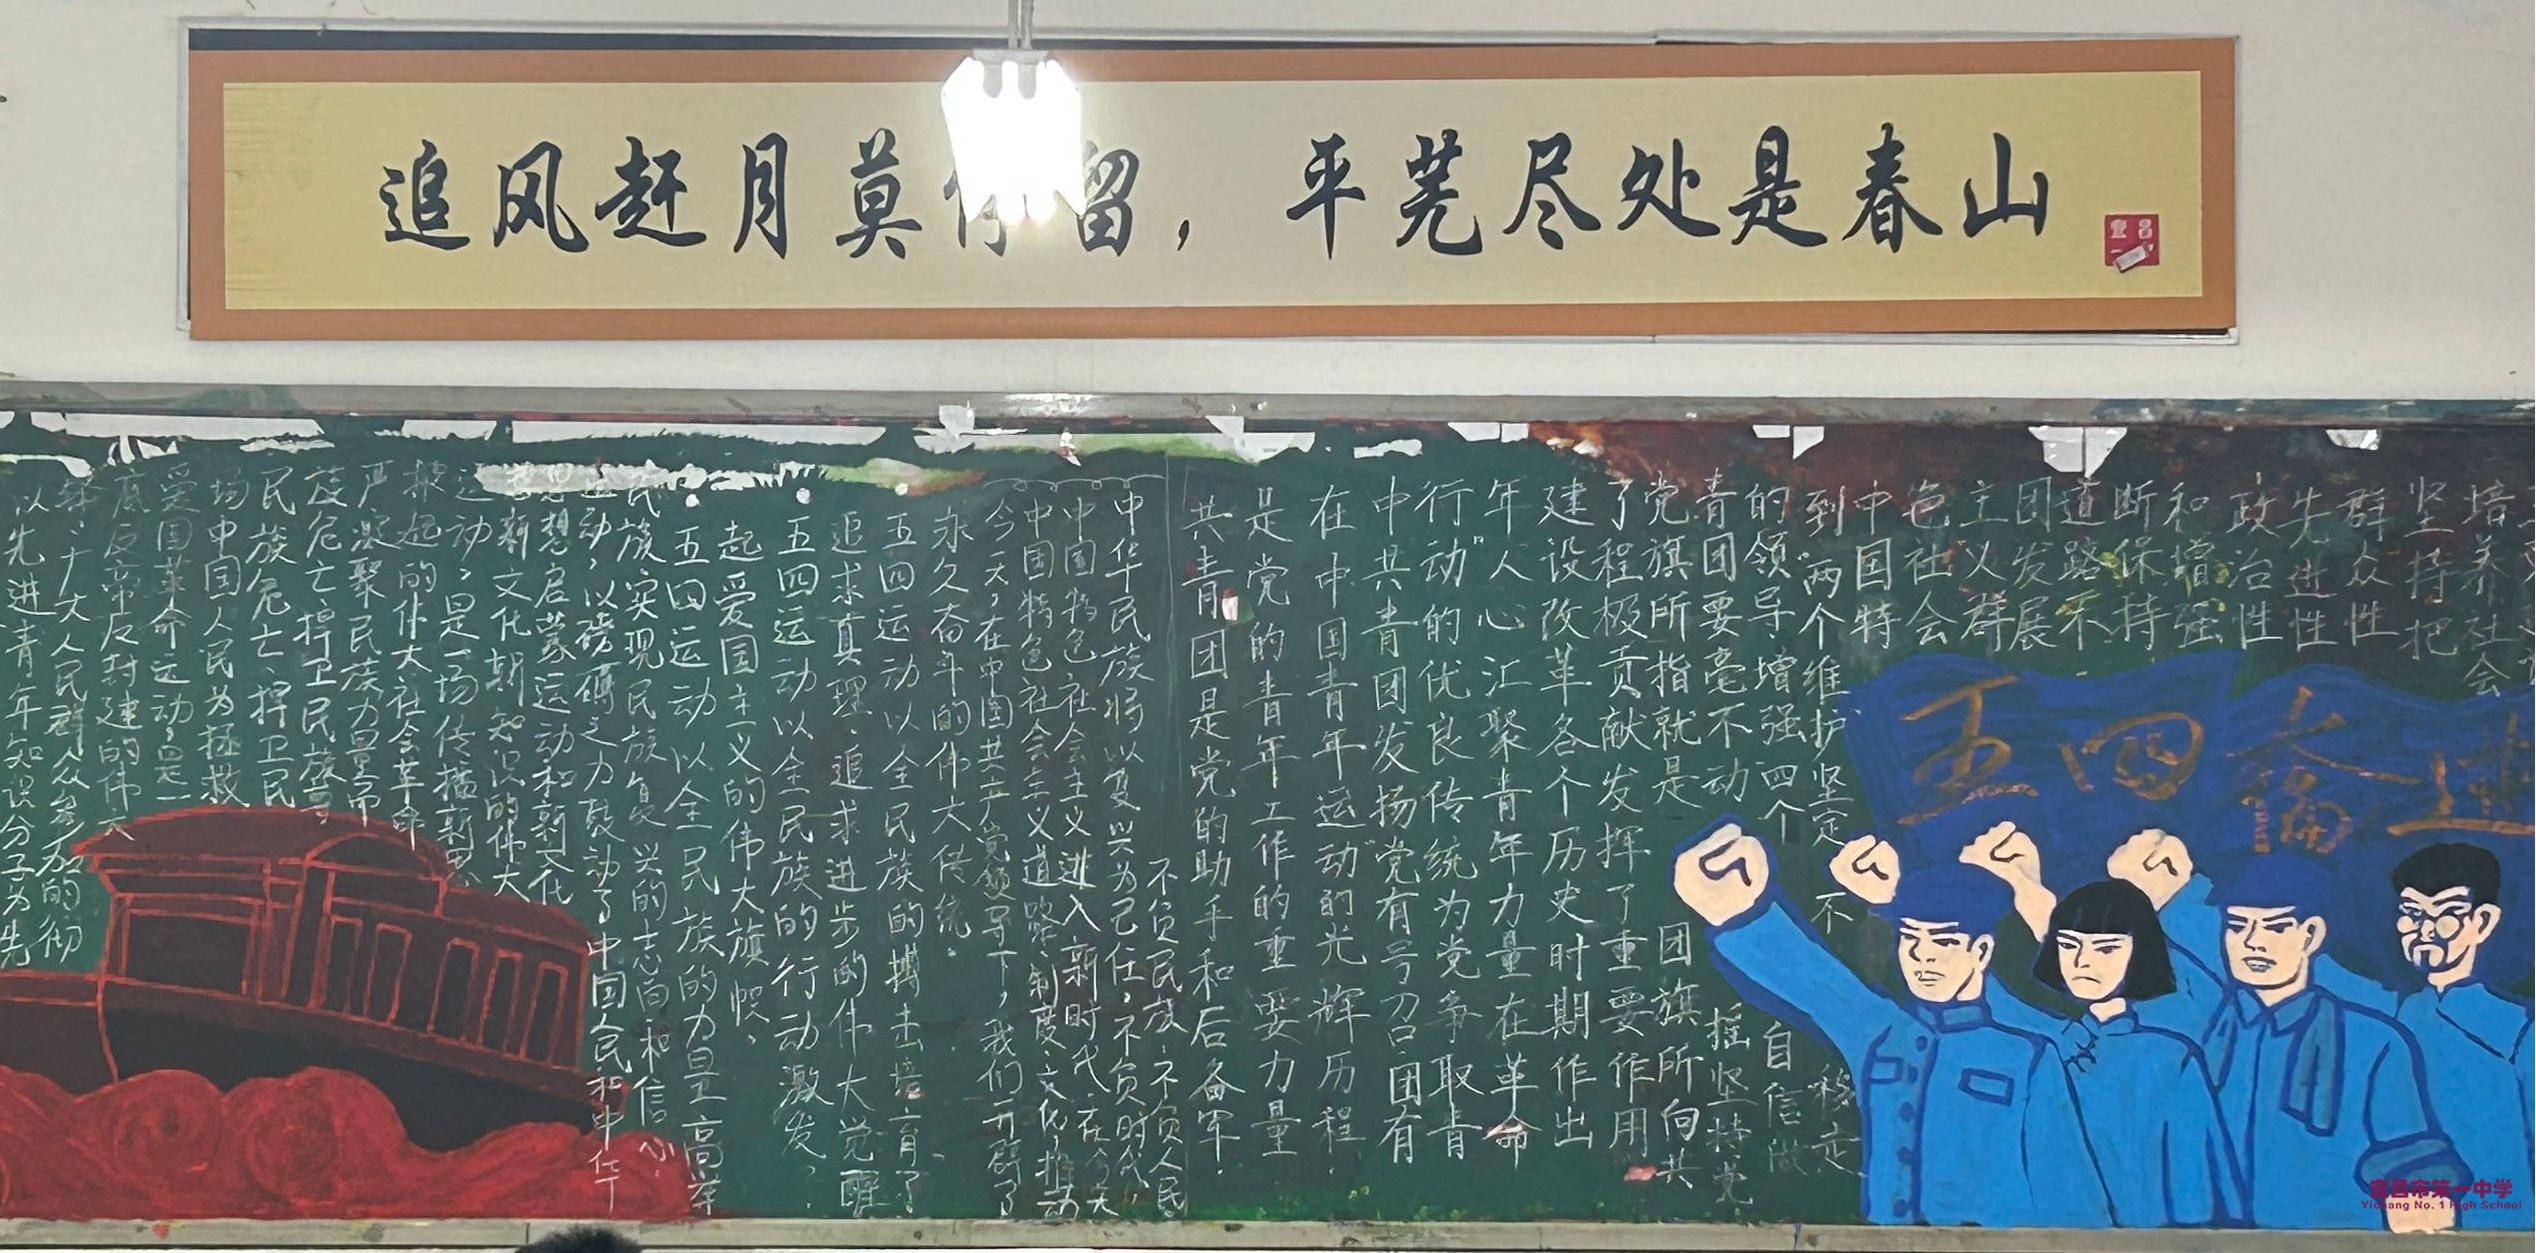 追风赶月莫停留，平芜尽处是春山
以先进青年知识分子为先
锋，广大人民群众参加的彻
底反帝反封建的伟大
爱国革命运动，是一
场中国人民为拯救
民族危亡、捍卫民
族危亡捍卫民族尊
严凝聚民族力量而
掀起的伟大社会革命
运动，是一场传播新思
新文化新知识的伟大
思想启蒙运动和新文化
运动，以磅礴之力鼓动了中国人民和中华
民族实现民族复兴的志向和信心.
五四运动以全民族的力量高举
起爱国主义的伟大旗帜、
五四运动以全民族的行动激发了
追求真理、追求进步的伟大觉醒
五四运动以全民族的搏击培育了
永久奋斗的伟大传统。
今天，在中国共产党领导下，我们开辟了
中国特色社会主义道路、制度、文化，推动
中国特色社会主义进入新时代.在今天
中华民族将以复兴为己任，不负时代，
不负民族，不负人民
共青团是党的助手和后备军.
是党的青年工作的重要力量
在中国青年运动的光辉历程
中共青团发扬“党有号召团有
行动”的优良传统为党争取青
年人心汇聚青年力量在革命
建设改革各个历史时期作出
了程极贡献发挥了重要作用
党旗所指就是团旗所向共
青团要毫不动摇坚持党
的领导增强四个自信做
到“两个维护坚定不移走
中国特
色社会
主义群
团发展
道路不
断保持
和增强
政治性
先进性
群众性
坚持把
培养社会
五四奋进
宜昌市第一中学
Yichang No. 1 High School